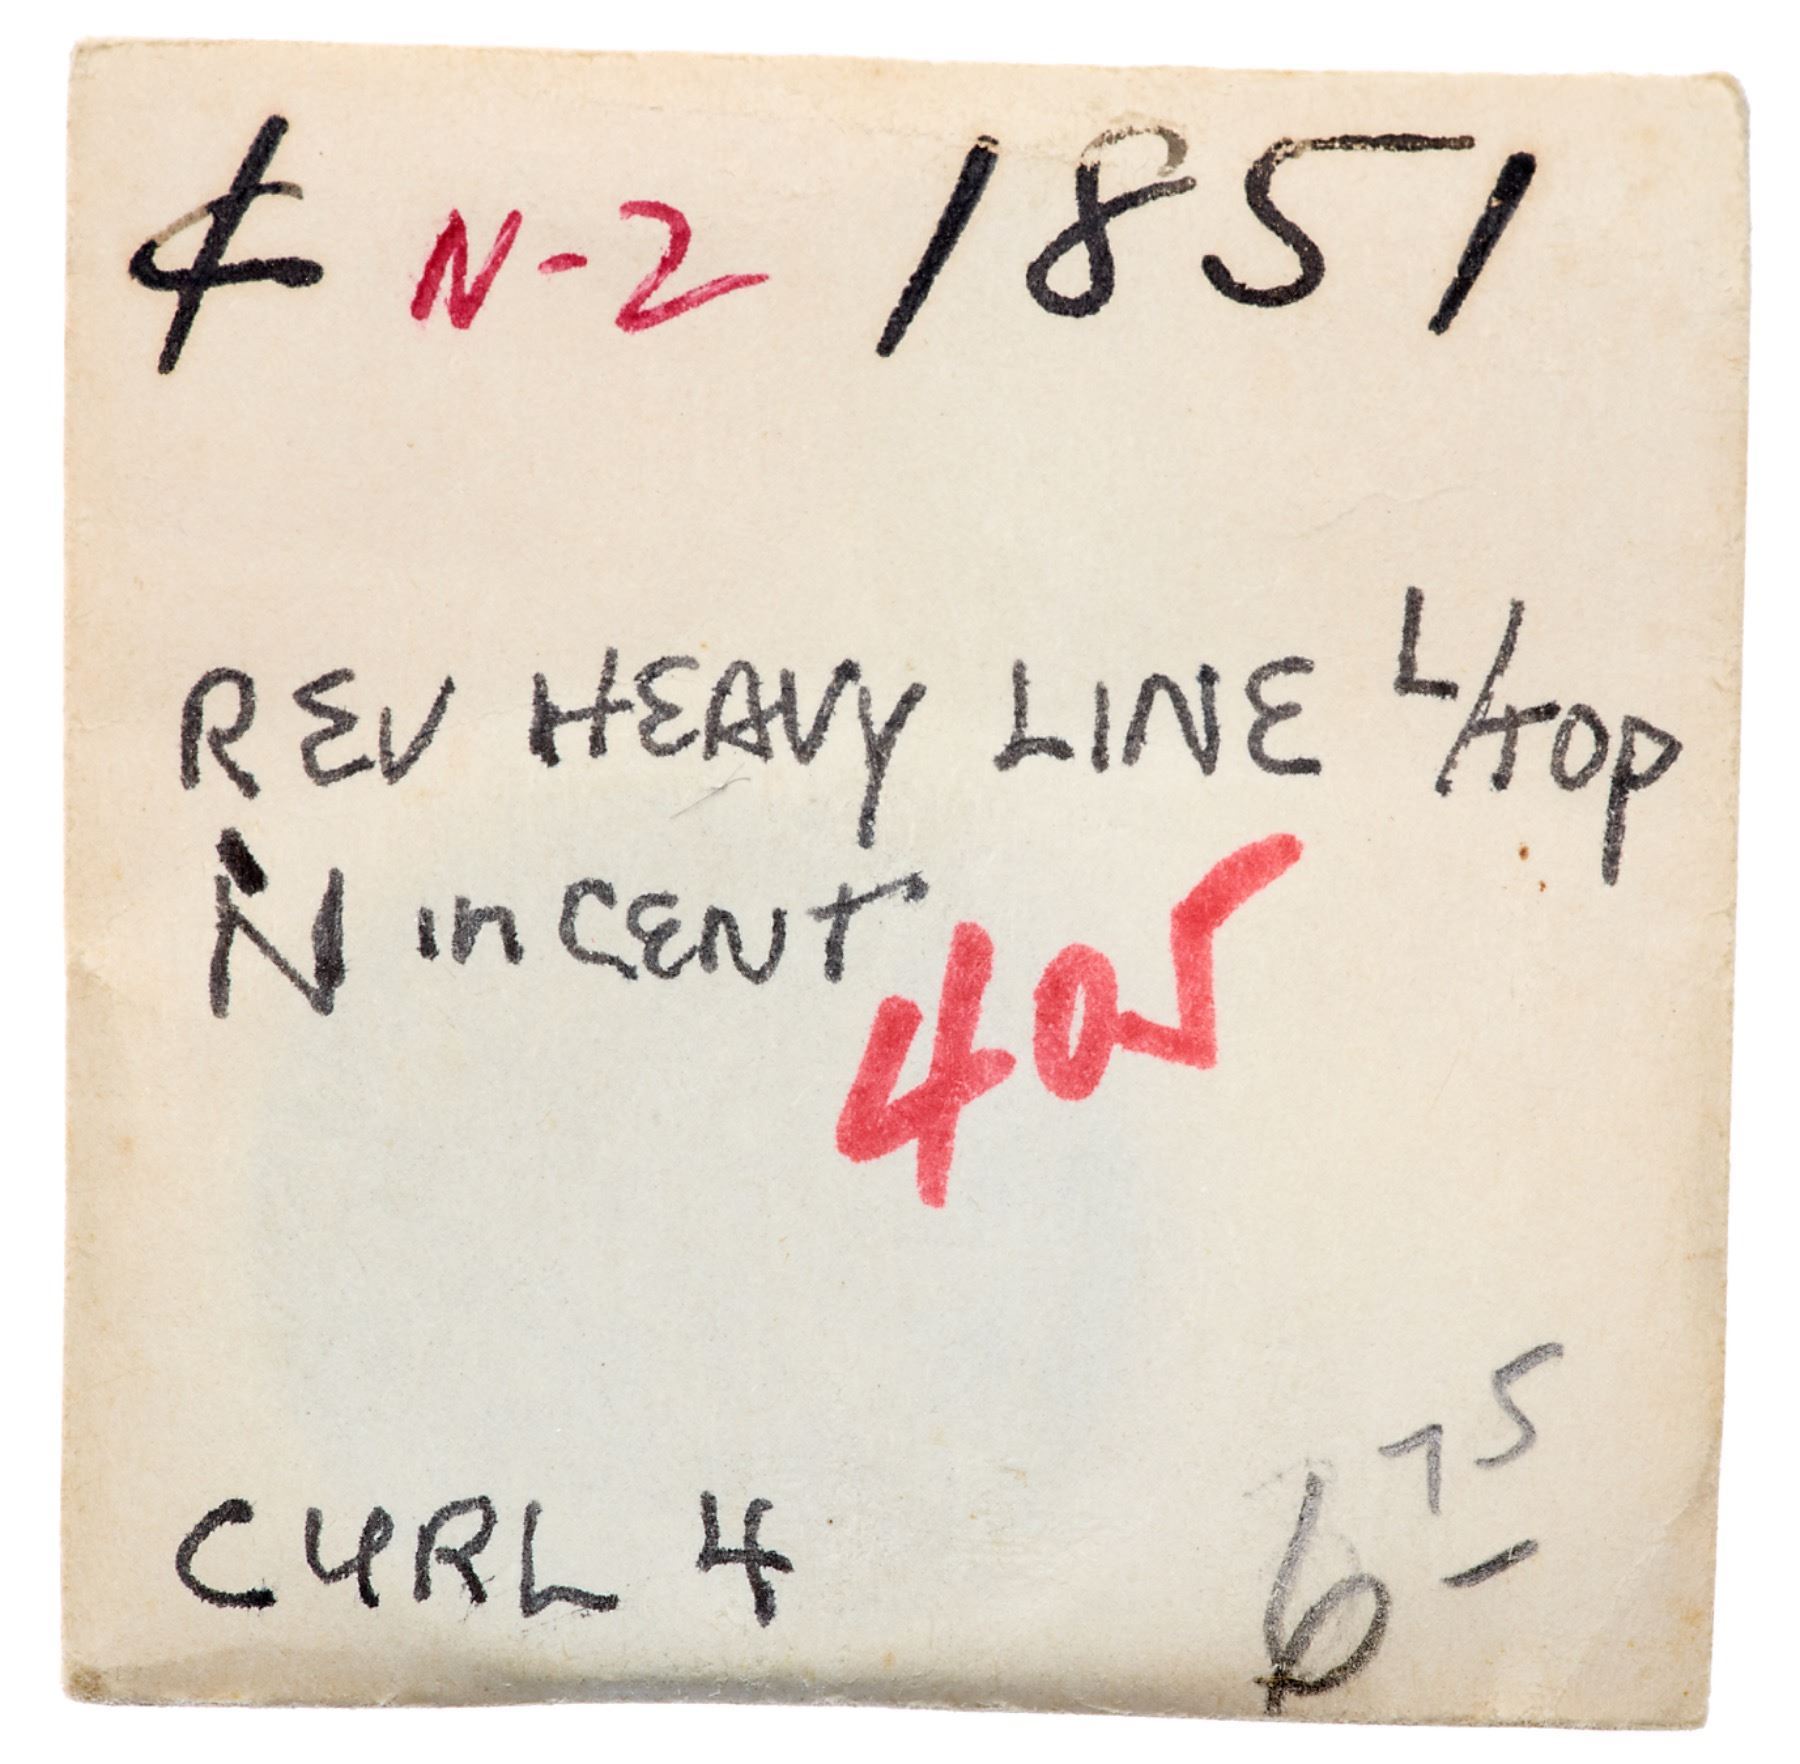 ¢ N-2 1851
REV HEAVY LINE L/TOP
N in CENT
405
CURL 4
6 75